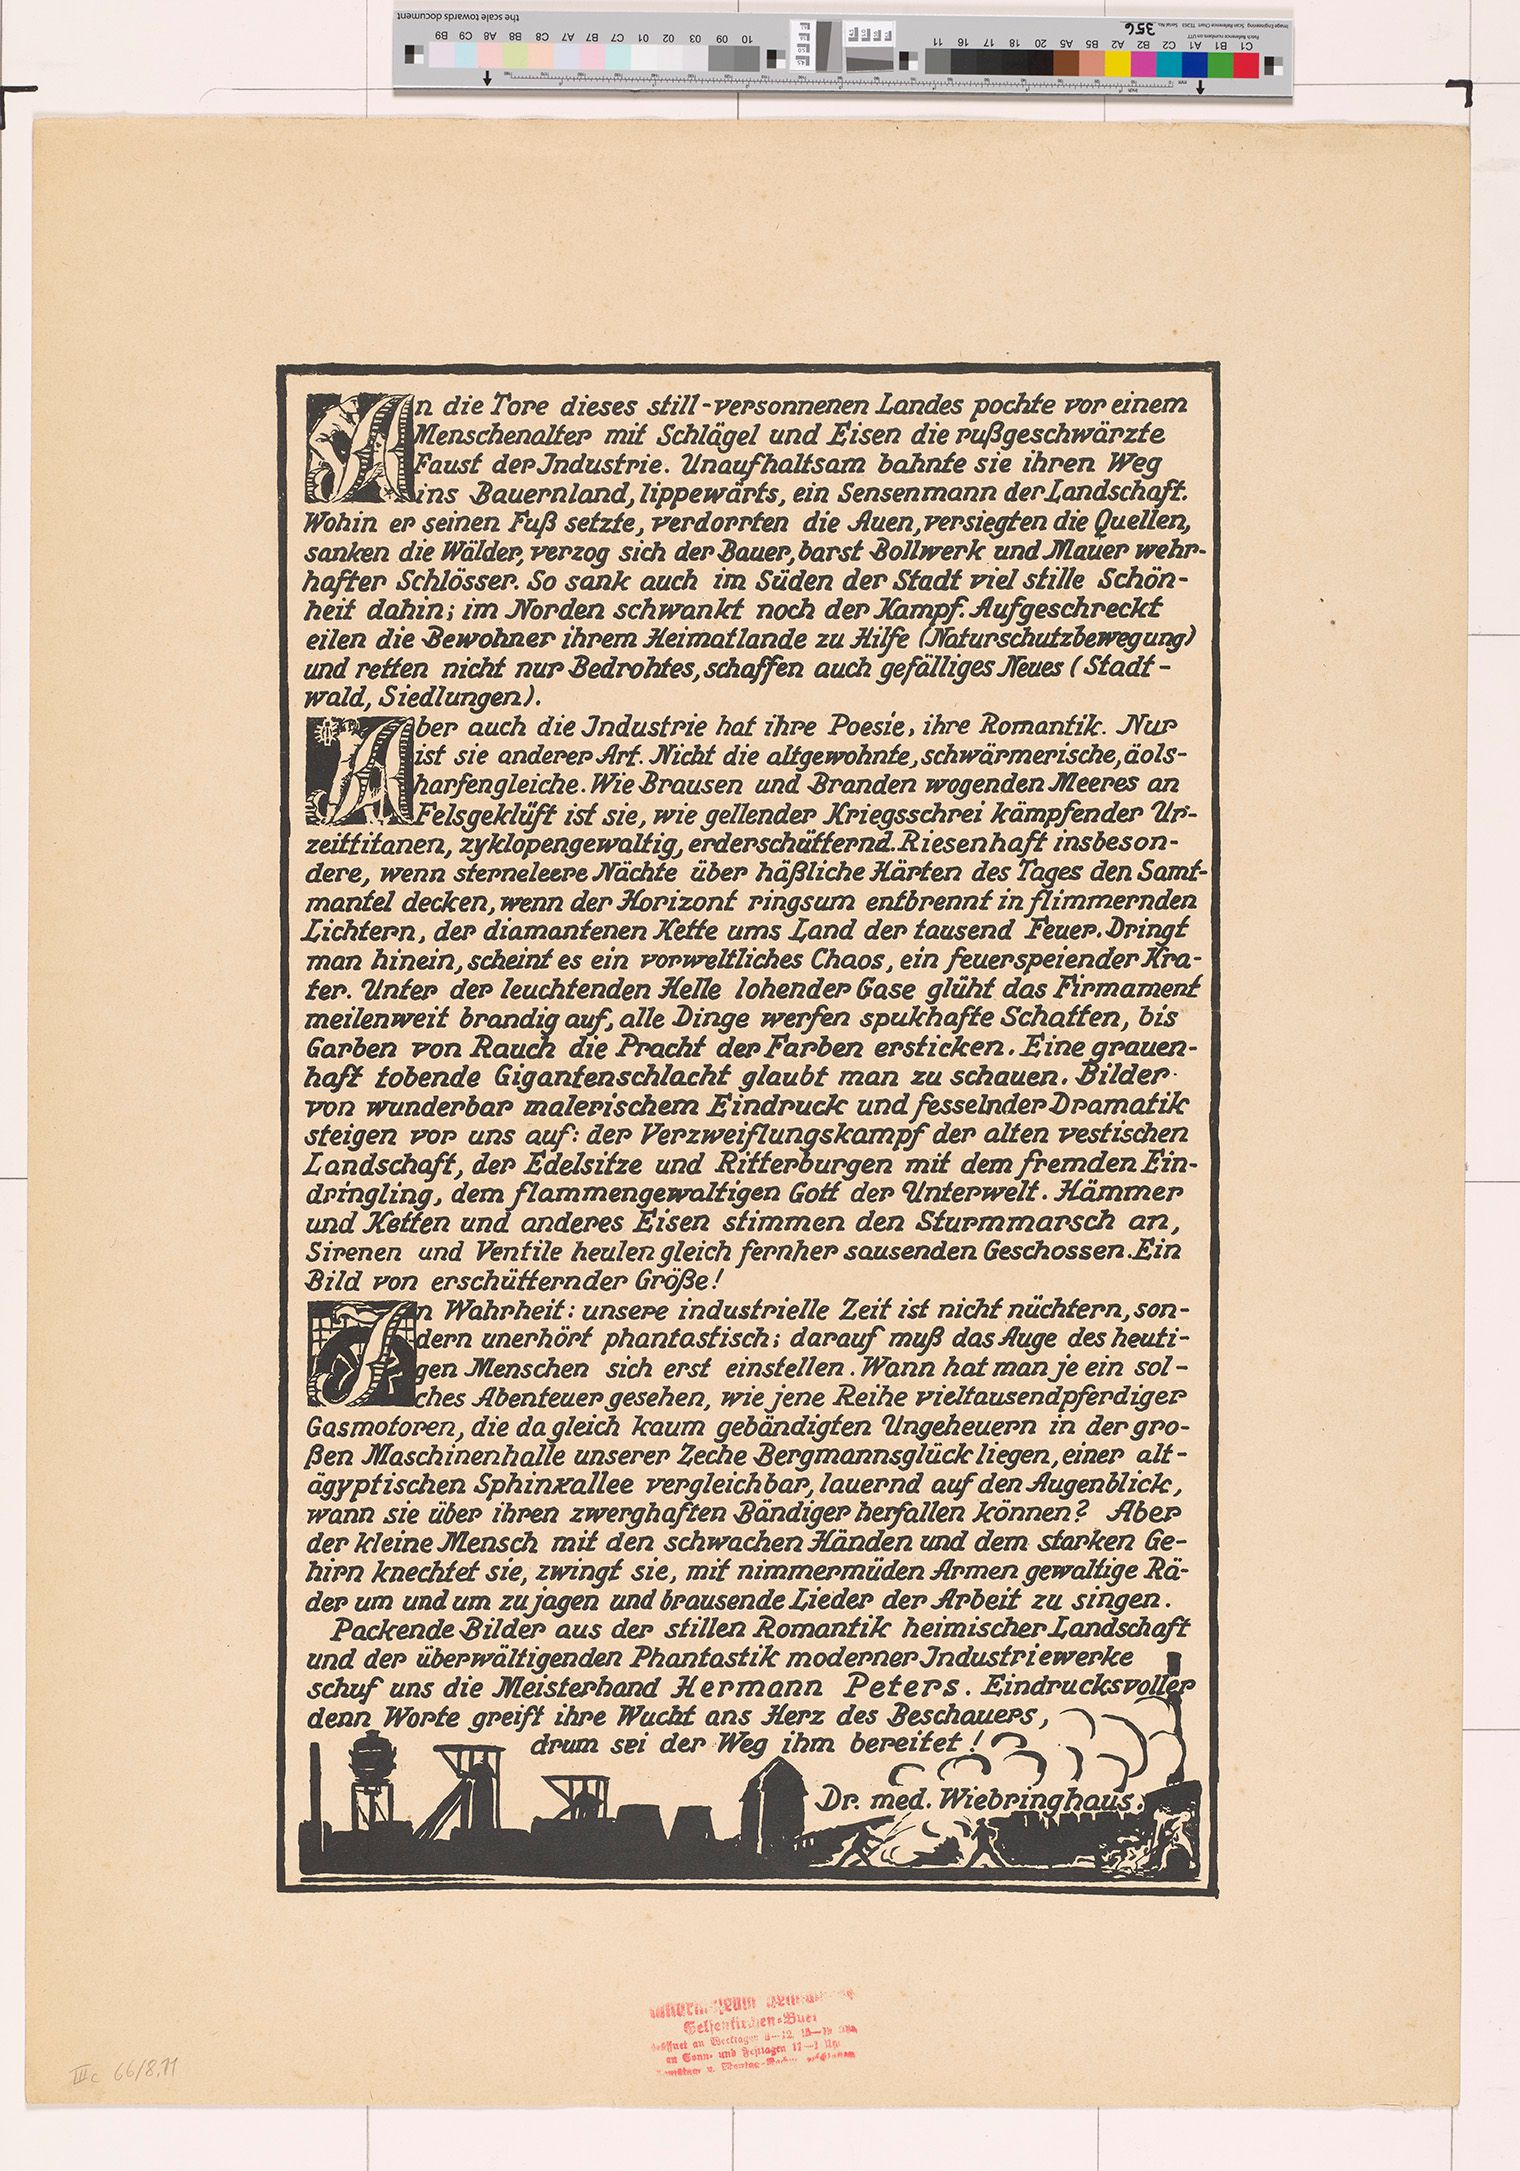 An die Tore dieses still-versonnenen Landes pochte vor einem
Menschenalter mit Schlägel und Eisen die rußgeschwärzte
Faust der Industrie. Unaufhaltsam bahnte sie ihren Weg
ins Bauernland, lippewärts, ein Sensenmann der Landschaft.
Wohin er seinen Fuß setzte, verdorrten die Auen, versiegten die Quellen,
sanken die Wälder, verzog sich der Bauer, barst Bollwerk und Mauer wehr-
hafter Schlösser. So sank auch im Süden der Stadt viel stille Schön-
heit dahin; im Norden schwankt noch der Kampf. Aufgeschreckt
eilen die Bewohner ihrem Heimatlande zu Hilfe (Naturschutzbewegung)
und retten nicht nur Bedrohtes, schaffen auch gefälliges Neues (Stadt-
wald, Siedlungen).
Aber auch die Industrie hat ihre Poesie, ihre Romantik. Nur
ist sie anderer Art. Nicht die altgewohnte, schwärmerische, äols-
harfengleiche. Wie Brausen und Branden wogenden Meeres an
Felsgeklüft ist sie, wie gellender Kriegsschrei kämpfender Ur-
zeittitanen, zyklopengewaltig, erderschütternd. Riesenhaft insbeson-
dere, wenn sterneleere Nächte über häßliche Härten des Tages den Samt-
mantel decken, wenn der Horizont ringsum entbrennt in flimmernden
Lichtern, der diamantenen Kette ums Land der tausend Feuer. Dringt
man hinein, scheint es ein vorweltliches Chaos, ein feuerspeiender Kra-
ter. Unter der leuchtenden Helle lohender Gase glüht das Firmament
meilenweit brandig auf, alle Dinge werfen spukhafte Schatten, bis
Garben von Rauch die Pracht der Farben ersticken. Eine grauen-
haft tobende Gigantenschlacht glaubt man zu schauen. Bilder
von wunderbar malerischem Eindruck und fesselnder Dramatik
steigen vor uns auf: der Verzweiflungskampf der alten vestischen
Landschaft, der Edelsitze und Ritterburgen mit dem fremden Ein-
dringling, dem flammengewaltigen Gott der Unterwelt. Hämmer
und Ketten und anderes Eisen stimmen den Sturmmarsch an,
Sirenen und Ventile heulen gleich fernher sausenden Geschossen. Ein
Bild von erschütternder Größe!
In Wahrheit: unsere industrielle Zeit ist nicht nüchtern, son-
dern unerhört phantastisch; darauf muß das Auge des heuti-
gen Menschen sich erst einstellen. Wann hat man je ein sol-
ches Abenteuer gesehen, wie jene Reihe vieltausendpferdiger
Gasmotoren, die da gleich kaum gebändigten Ungeheuern in der gro-
ßen Maschinenhalle unserer Zeche Bergmannsglück liegen, einer alt-
ägyptischen Sphinxallee vergleichbar, lauernd auf den Augenblick,
wann sie über ihren zwerghaften Bändiger herfallen können? Aber
der kleine Mensch mit den schwachen Händen und dem starken Ge-
hirn knechtet sie, zwingt sie, mit nimmermüden Armen gewaltige Rä-
der um und um zu jagen und brausende Lieder der Arbeit zu singen.
Packende Bilder aus der stillen Romantik heimischer Landschaft
und der überwältigenden Phantastik moderner Industriewerke
schuf uns die Meisterhand Hermann Peters. Eindrucksvoller
denn Worte greift ihre Wucht ans Herz des Beschauers,
drum sei der Weg ihm bereitet!
Dr. med. Wiebringhaus.
Gelsenkirchen-Buer
an Sonn- und Festtagen
IIIc 66/8,11
the scale towards document
B9 C9 A8 B8 C8 A7 B7 C7 01 02 03 09 10
11 16 17 18 20 A5 B5 A2 B2 C2 A1 B1 C1
356